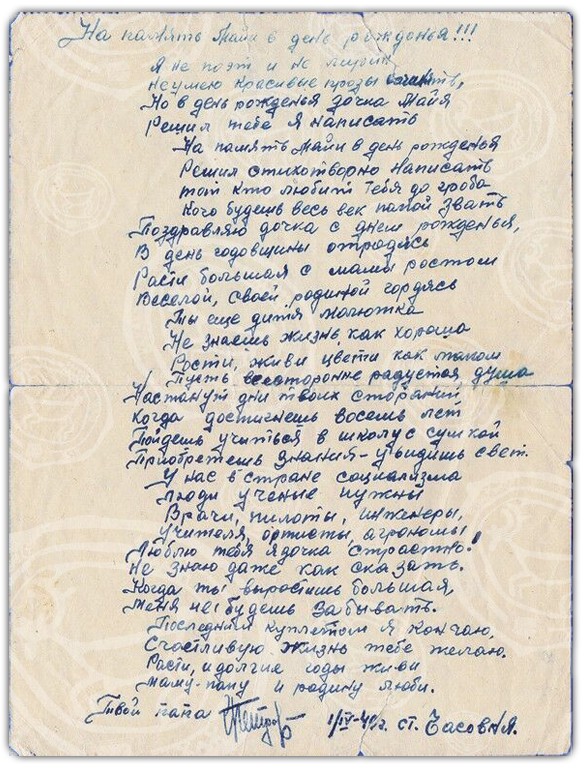 На память Майи в день рожденья!!!
Я не поэт и не лирик
Не умею красивые прозы
Но в день рожденья дочка Майя
Решил тебе я написать
На память Майи в день рожденья
Решил стихотворно написать
тот кто любит тебя до гроба
Кого будешь весь век папой звать
Поздравляю дочка с днем рожденья,
В день годовщины отродясь
Расти большая с мамы ростом
Веселой, своей родиной гордясь
Ты еще дитя малютка
Не знаешь жизнь, как хороша
Рости, живи цвети как
Пусть всесторонне радуется, душа
Настанут дни твоих стараний
Когда достигнешь восемь лет
Пойдешь учиться в школу с сумкой
Приобретешь знания - увидишь свет.
У нас в стране социализма
Люди ученые нужны
Врачи, пилоты, инженеры,
Учителя, артисты, агрономы!
Люблю тебя я дочка страстно!
Не знаю даже как сказать.
Когда ты выростишь большая,
Меня не будешь забывать.
Последним куплетом я кончаю,
Счастливую жизнь тебе желаю.
Расти, и долгие годы живи
Маму-папу и родину люби.
Твой папа 1/IV-40г. ст. Часовня.